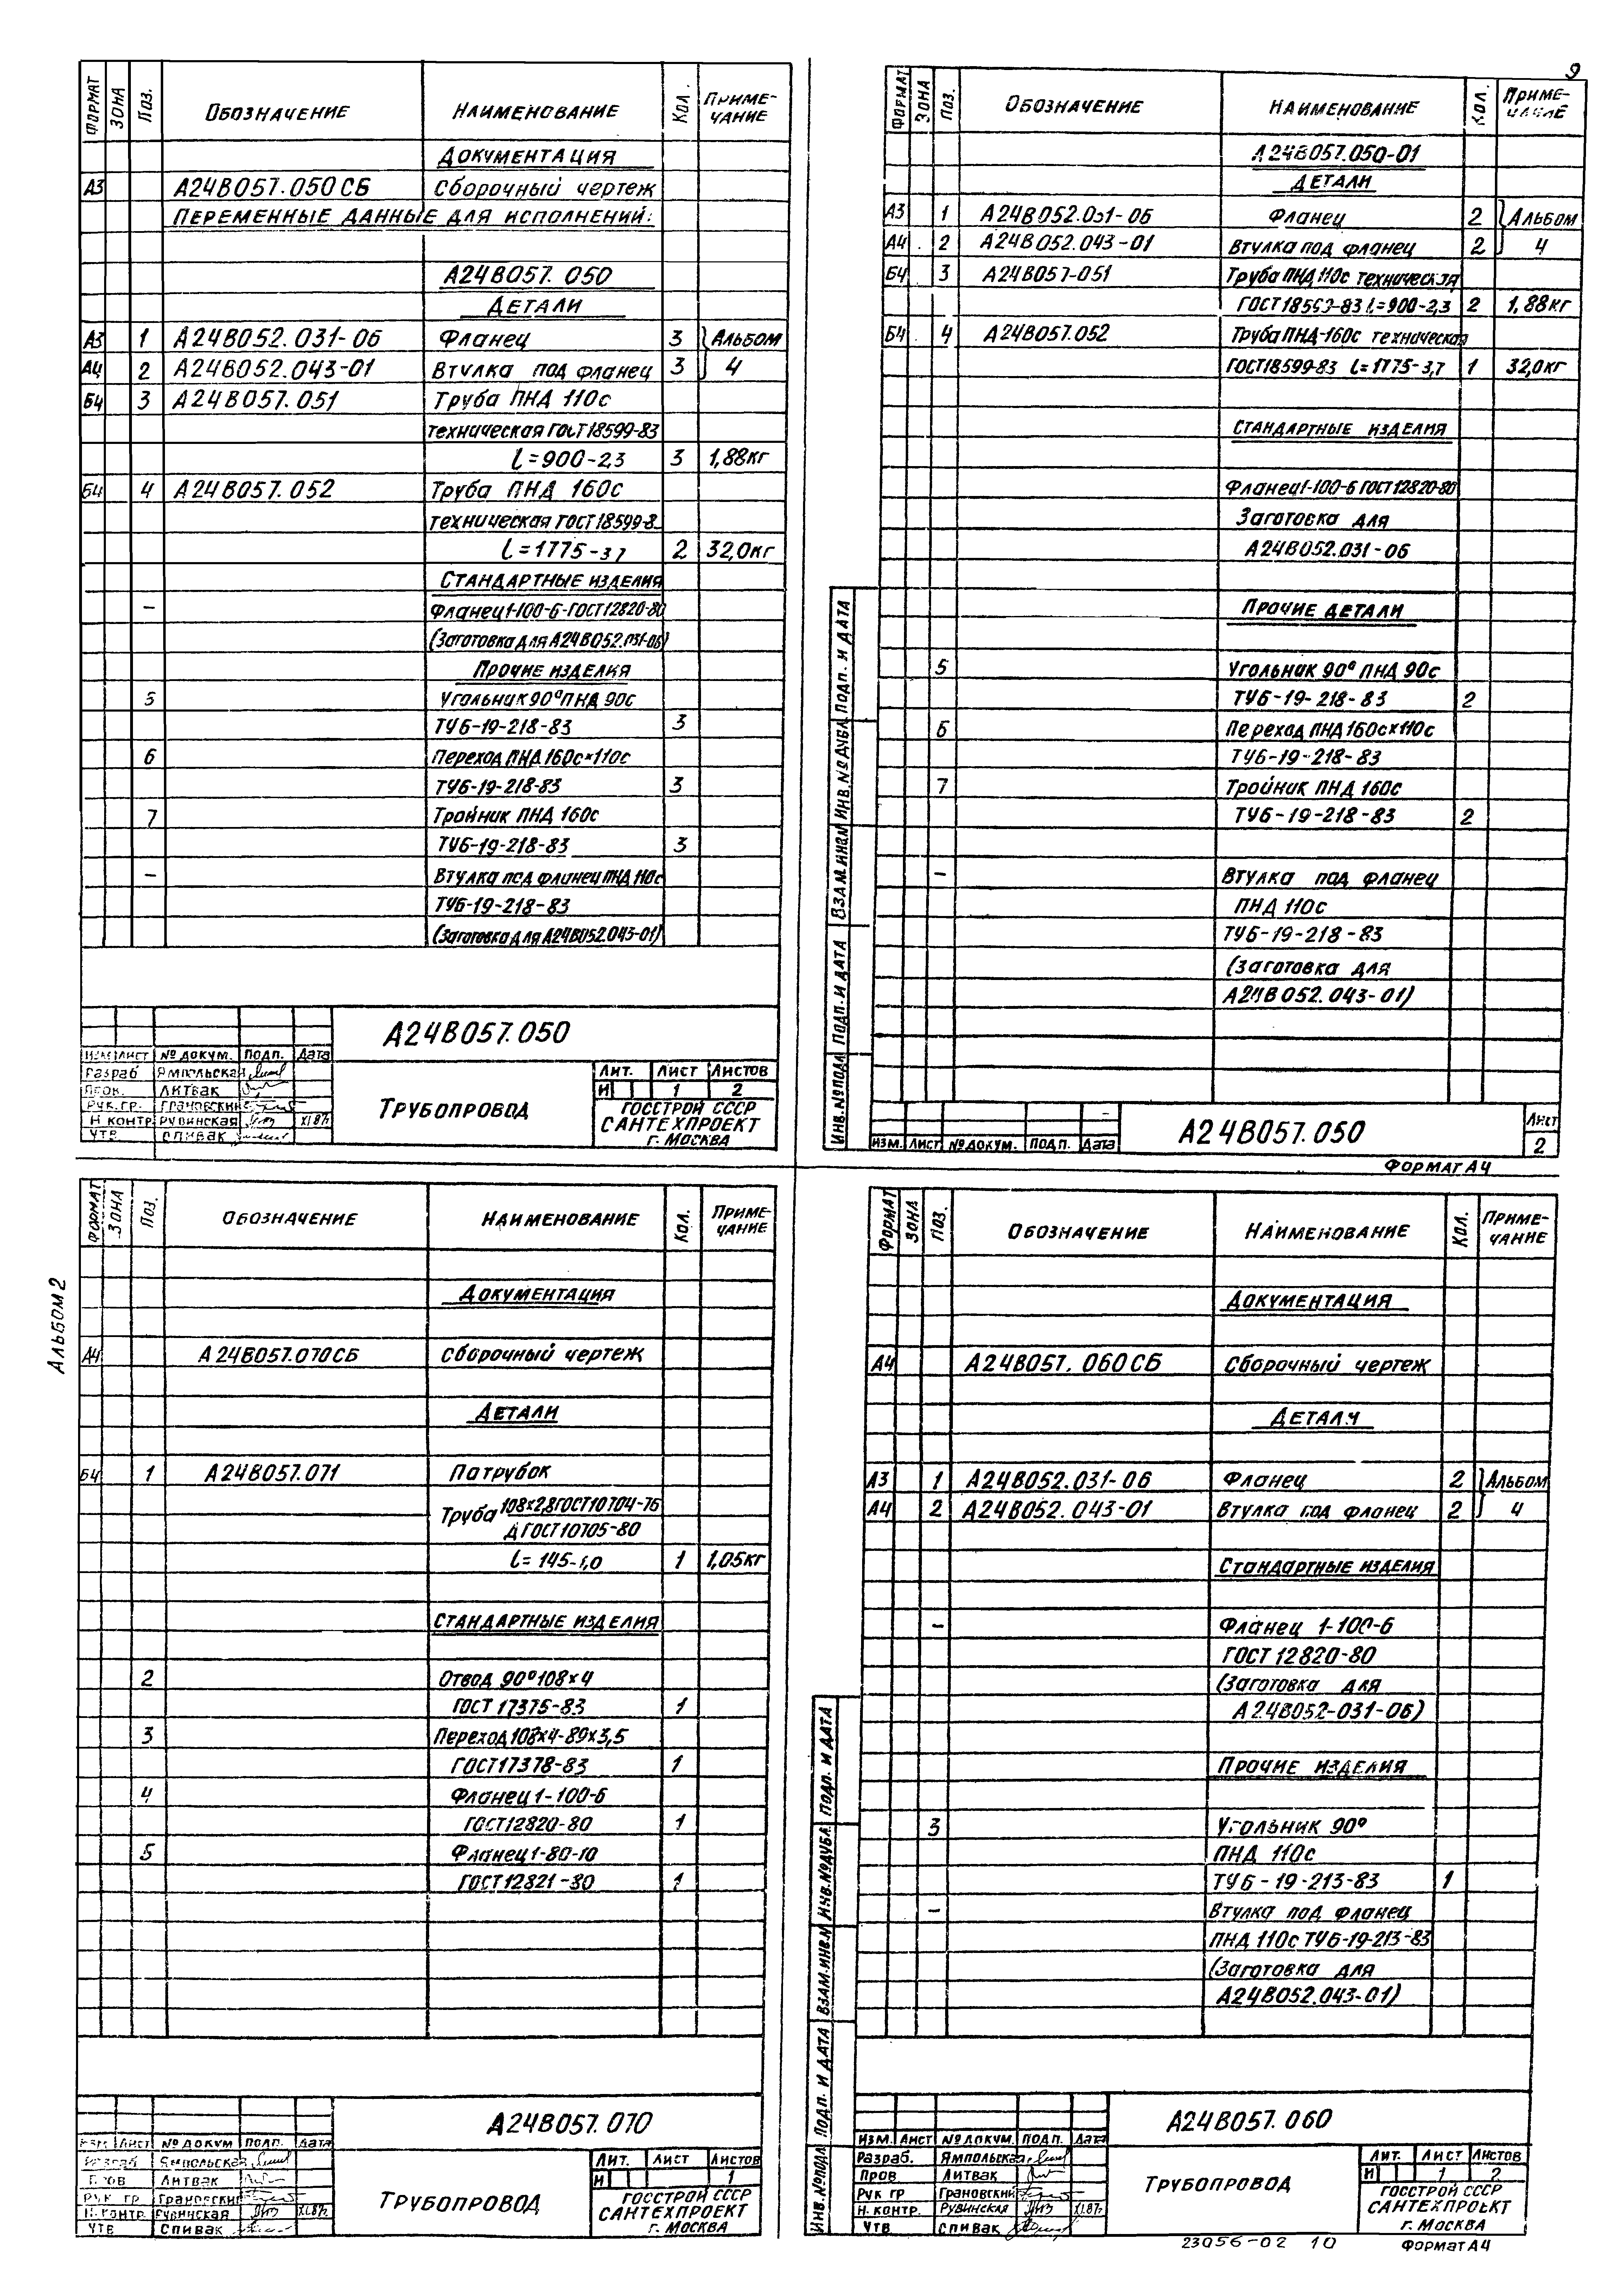 9
ФОРМАТ ЗОНА Поз. ОБОЗНАЧЕНИЕ НАИМЕНОВАНИЕ КОЛ. ПРИМЕ-ЧАНИЕ
ДОКУМЕНТАЦИЯ
А3 А24В057.050СБ СБОРОЧНЫЙ ЧЕРТЕЖ
ПЕРЕМЕННЫЕ ДАННЫЕ ДЛЯ ИСПОЛНЕНИЙ:
А24В057.050
ДЕТАЛИ
А3 1 А24В052.031-06 Фланец 3 } Альбом
А4 2 А24В052.043-01 Втулка под фланец 3 4
Б4 3 А24В057.051 Труба ПНД 110с
техническая ГОСТ 18599-83
l=900-2,3 3 1,88кг
Б4 4 А24В057.052 Труба ПНД 160с
техническая ГОСТ 18599-8
l=1775-3,7 2 32,0кг
СТАНДАРТНЫЕ ИЗДЕЛИЯ
– Фланец 1-100-6-ГОСТ12820-80
(Заготовка для А24В052.031-06)
ПРОЧИЕ ИЗДЕЛИЯ
5 Угольник 90° ПНД 90с
ТУ6-19-218-83 3
6 Переход ПНД 160с×110с
ТУ6-19-218-83 3
7 Тройник ПНД 160с
ТУ6-19-218-83 3
– Втулка под фланец ПНД 110с
ТУ6-19-218-83
(Заготовка для А24В052.043-01)
А24В057.050
ИЗМ ЛИСТ № ДОКУМ. ПОДП. ДАТА
Разраб ЯМПОЛЬСКАЯ
Пров. ЛИТВАК
РУК.ГР. ГРАНОВСКИЙ
Н КОНТР РУВИНСКАЯ XI.87г
УТВ СПИВАК
ТРУБОПРОВОД
ЛИТ. ЛИСТ ЛИСТОВ
И 1 2
ГОССТРОЙ СССР
САНТЕХПРОЕКТ
г. МОСКВА
ФОРМАТ ЗОНА ПОЗ. ОБОЗНАЧЕНИЕ НАИМЕНОВАНИЕ КОЛ. ПРИМЕ-ЧАНИЕ
А24В057.050-01
ДЕТАЛИ
А3 1 А24В052.031-06 Фланец 2 } Альбом
А4 2 А24В052.043-01 Втулка под фланец 2 4
Б4 3 А24В057-051 Труба ПНД 110с техническая
ГОСТ 18599-83 l=900-2,3 2 1,88кг
Б4 4 А24В057.052 Труба ПНД-160с техническая
ГОСТ18599-83 l=1775-3,7 1 32,0кг
СТАНДАРТНЫЕ ИЗДЕЛИЯ
Фланец1-100-6 ГОСТ12820-80
Заготовка для
А24В052.031-06
ПРОЧИЕ ДЕТАЛИ
5 Угольник 90° ПНД 90с
ТУ6-19-218-83 2
6 Переход ПНД 160с×110с
ТУ6-19-218-83
7 Тройник ПНД 160с
ТУ6-19-218-83 2
– Втулка под фланец
ПНД 110с
ТУ6-19-218-83
(Заготовка для
А24В052.043-01)
ИНВ.№ПОДЛ ПОДП. И ДАТА ВЗАМ.ИНВ.№ ИНВ.№ДУБЛ. ПОДП. И ДАТА
ИЗМ. ЛИСТ № ДОКУМ. ПОДП. ДАТА
А24В057.050
ЛИСТ
2
ФОРМАТ А4
АЛЬБОМ 2
ФОРМАТ ЗОНА ПОЗ. ОБОЗНАЧЕНИЕ НАИМЕНОВАНИЕ КОЛ. ПРИМЕ-ЧАНИЕ
ДОКУМЕНТАЦИЯ
А4 А24В057.070СБ СБОРОЧНЫЙ ЧЕРТЕЖ
ДЕТАЛИ
Б4 1 А24В057.071 Патрубок
Труба 108×2,8 ГОСТ10704-76
Д ГОСТ10705-80
l=145-1,0 1 1,05кг
СТАНДАРТНЫЕ ИЗДЕЛИЯ
2 Отвод 90° 108×4
ГОСТ 17375-83 1
3 Переход 108×4-89×3,5
ГОСТ17378-83 1
4 Фланец 1-100-6
ГОСТ12820-80 1
5 Фланец 1-80-10
ГОСТ12821-80 1
А24В057.070
ИЗМ ЛИСТ № ДОКУМ ПОДП. ДАТА
Разраб ЯМПОЛЬСКАЯ
Пров ЛИТВАК
РУК ГР ГРАНОВСКИЙ
Н. КОНТР. РУВИНСКАЯ XI.87г.
УТВ СПИВАК
ТРУБОПРОВОД
ЛИТ. ЛИСТ ЛИСТОВ
И 1
ГОССТРОЙ СССР
САНТЕХПРОЕКТ
г. МОСКВА
ФОРМАТ ЗОНА ПОЗ. ОБОЗНАЧЕНИЕ НАИМЕНОВАНИЕ КОЛ. ПРИМЕ-ЧАНИЕ
ДОКУМЕНТАЦИЯ
А4 А24В057.060СБ СБОРОЧНЫЙ ЧЕРТЕЖ
ДЕТАЛИ
А3 1 А24В052.031-06 Фланец 2 } Альбом
А4 2 А24В052.043-01 Втулка под фланец 2 4
СТАНДАРТНЫЕ ИЗДЕЛИЯ
– Фланец 1-100-6
ГОСТ 12820-80
(Заготовка для
А24В052-031-06)
ПРОЧИЕ ИЗДЕЛИЯ
3 Угольник 90°
ПНД 110с
ТУ6-19-213-83 1
– Втулка под фланец
ПНД 110с ТУ6-19-213-83
(Заготовка для
А24В052.043-01)
ИНВ.№ПОДЛ ПОДП. И ДАТА ВЗАМ.ИНВ.№ ИНВ.№ДУБЛ. ПОДП. И ДАТА
А24В057.060
ИЗМ. ЛИСТ № ДОКУМ. ПОДП. ДАТА
Разраб. ЯМПОЛЬСКАЯ
Пров ЛИТВАК
РУК ГР ГРАНОВСКИЙ
Н. КОНТР. РУВИНСКАЯ XI.87г
УТВ СПИВАК
ТРУБОПРОВОД
ЛИТ. ЛИСТ ЛИСТОВ
И 1 2
ГОССТРОЙ СССР
САНТЕХПРОЕКТ
г. МОСКВА
23056-02 10 ФОРМАТ А4